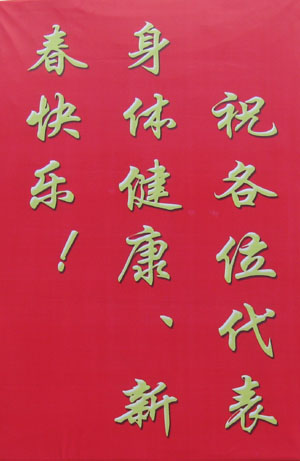 祝各位代表
身体健康、新
春快乐！